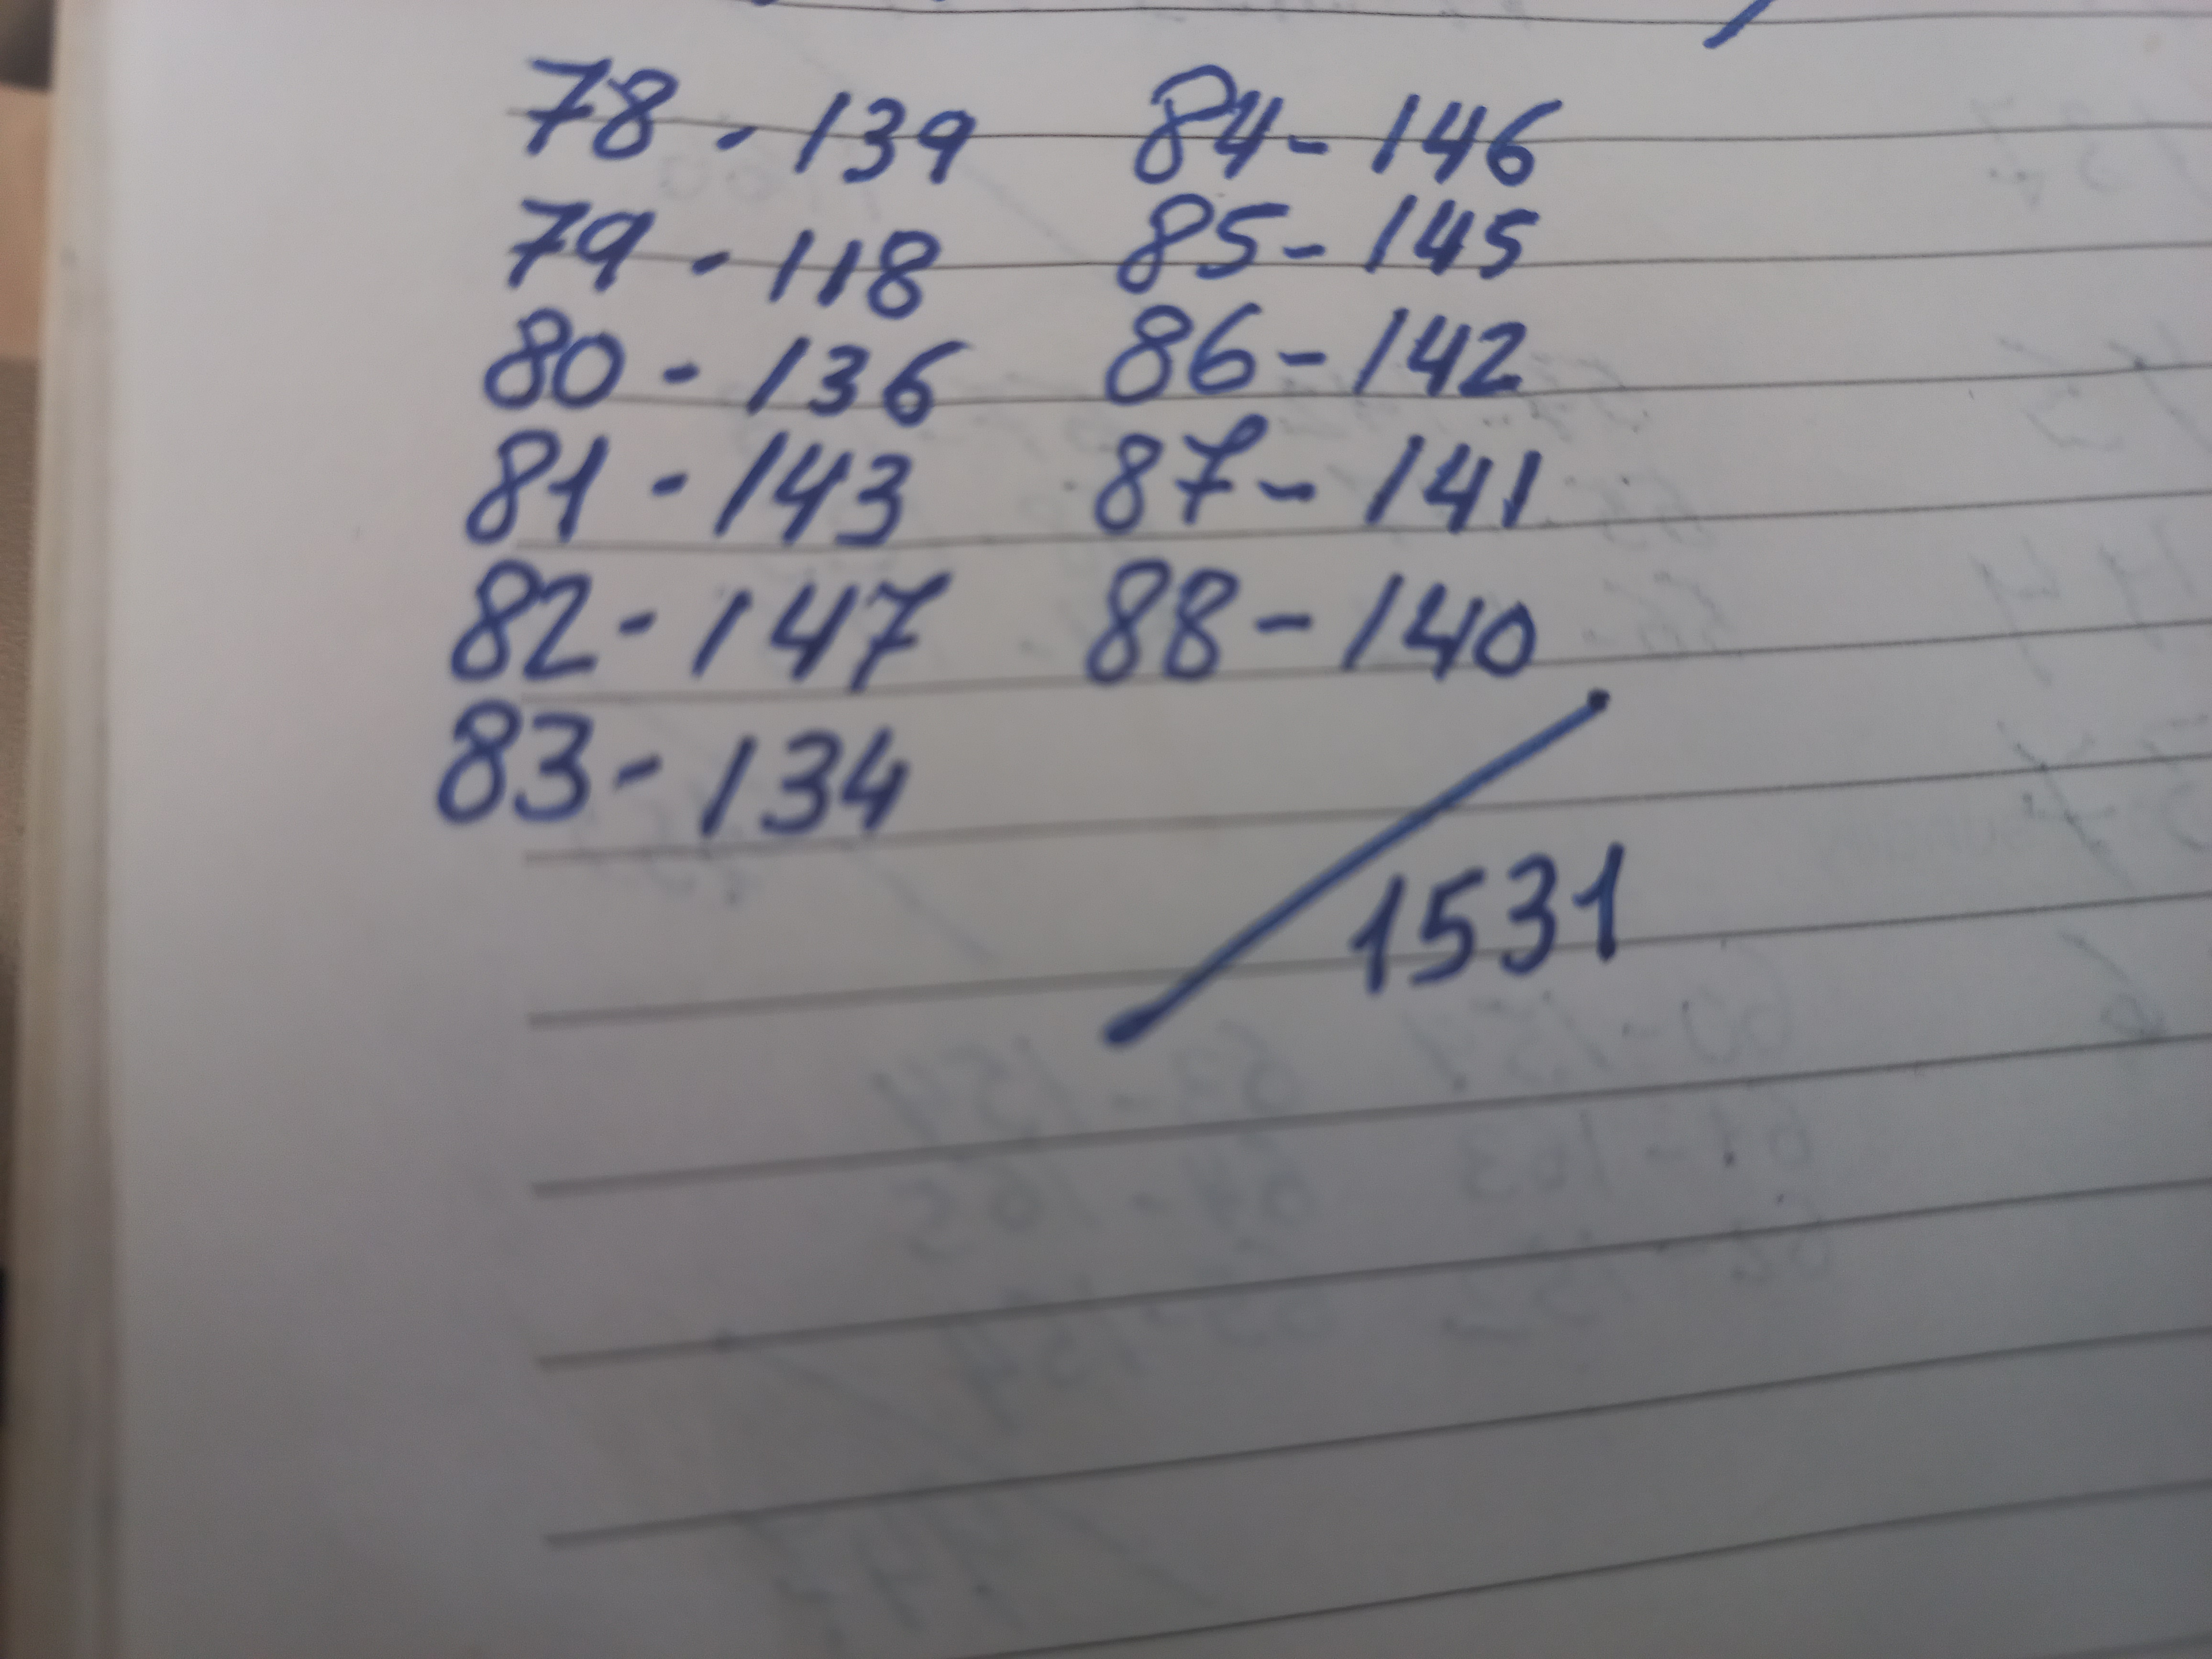 78 - 139
79 - 118
80 - 136
81 - 143
82 - 147
83 - 134
84 - 146
85 - 145
86 - 142
87 - 141
88 - 140
1531